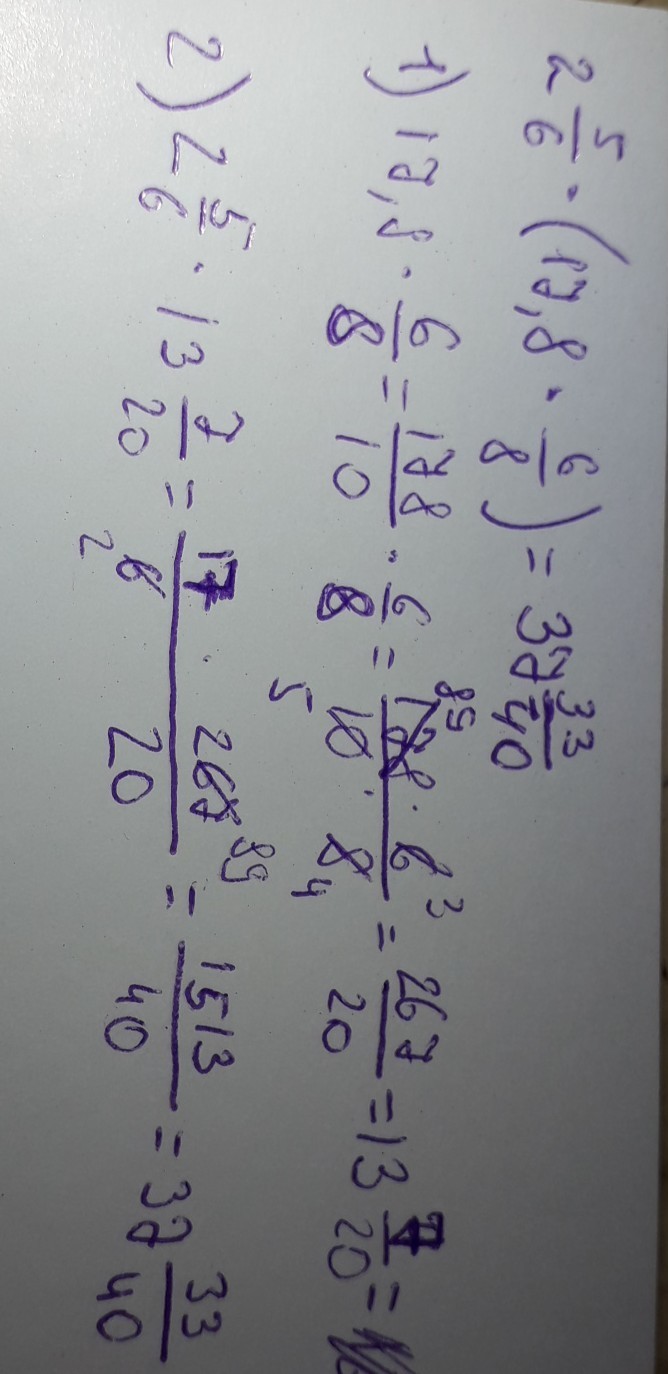 2 5/6 · (17,8 · 6/8) = 37 33/40
1) 17,8 · 6/8 = 178/10 · 6/8 = 178 89 · 6 3 / 10 5 · 8 4 = 267/20 = 13 7/20 =
2) 2 5/6 · 13 7/20 = 17 · 267 89 / 6 2 20 = 1513/40 = 37 33/40